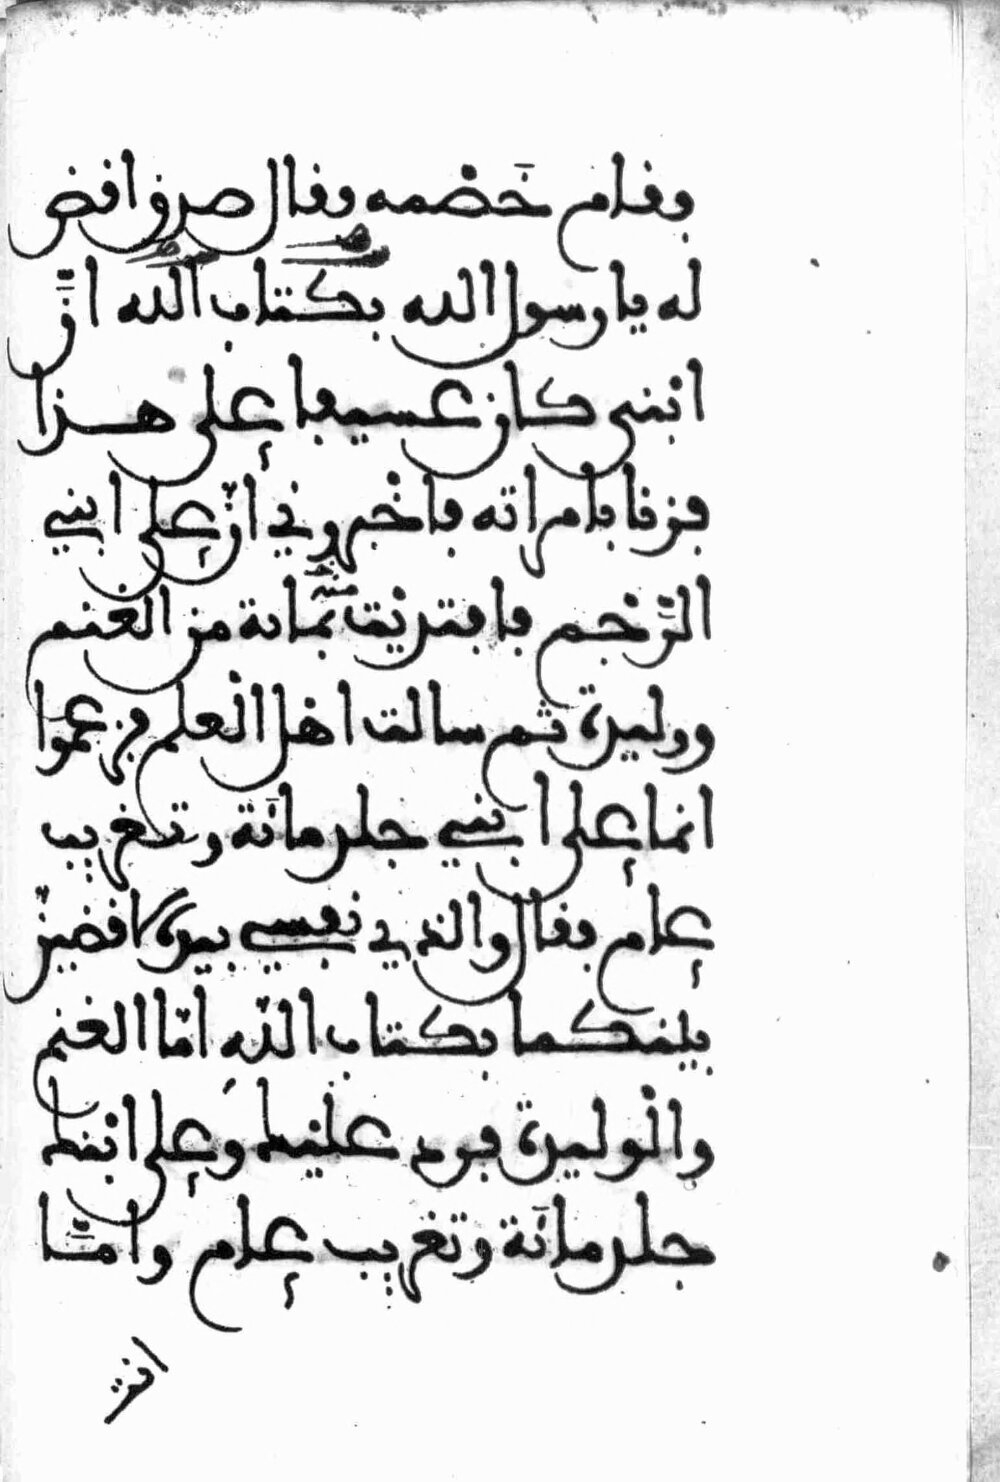 وقام خصمه وقال صدق اقض
له يا رسول الله بكتاب الله ان
ابني كان عسيفا على هذا
فزنا بامراته فاخبروني ان على ابني
الرجم فافتديت بماية من الغنم
ووليدة ثم سالت اهل العلم فزعموا
انما على ابني جلد مائة وتغريب
عام فقال والذي نفسي بيده لاقضين
بينكما بكتاب الله اما الغنم
والوليدة فرد عليك وعلى ابنك
جلد مائة وتغريب عام واما
انت